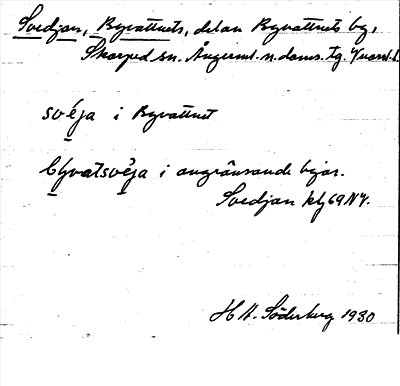 Svedjan, Byvattnets, delan Byvattnets by,
Skorped sn. Ångerml. n. doms. tg. Y
svéja i Byvattnet
byvatsvèja i angränsande byar.
Svedjan klj 69 NY.
H A. Söderberg 1930